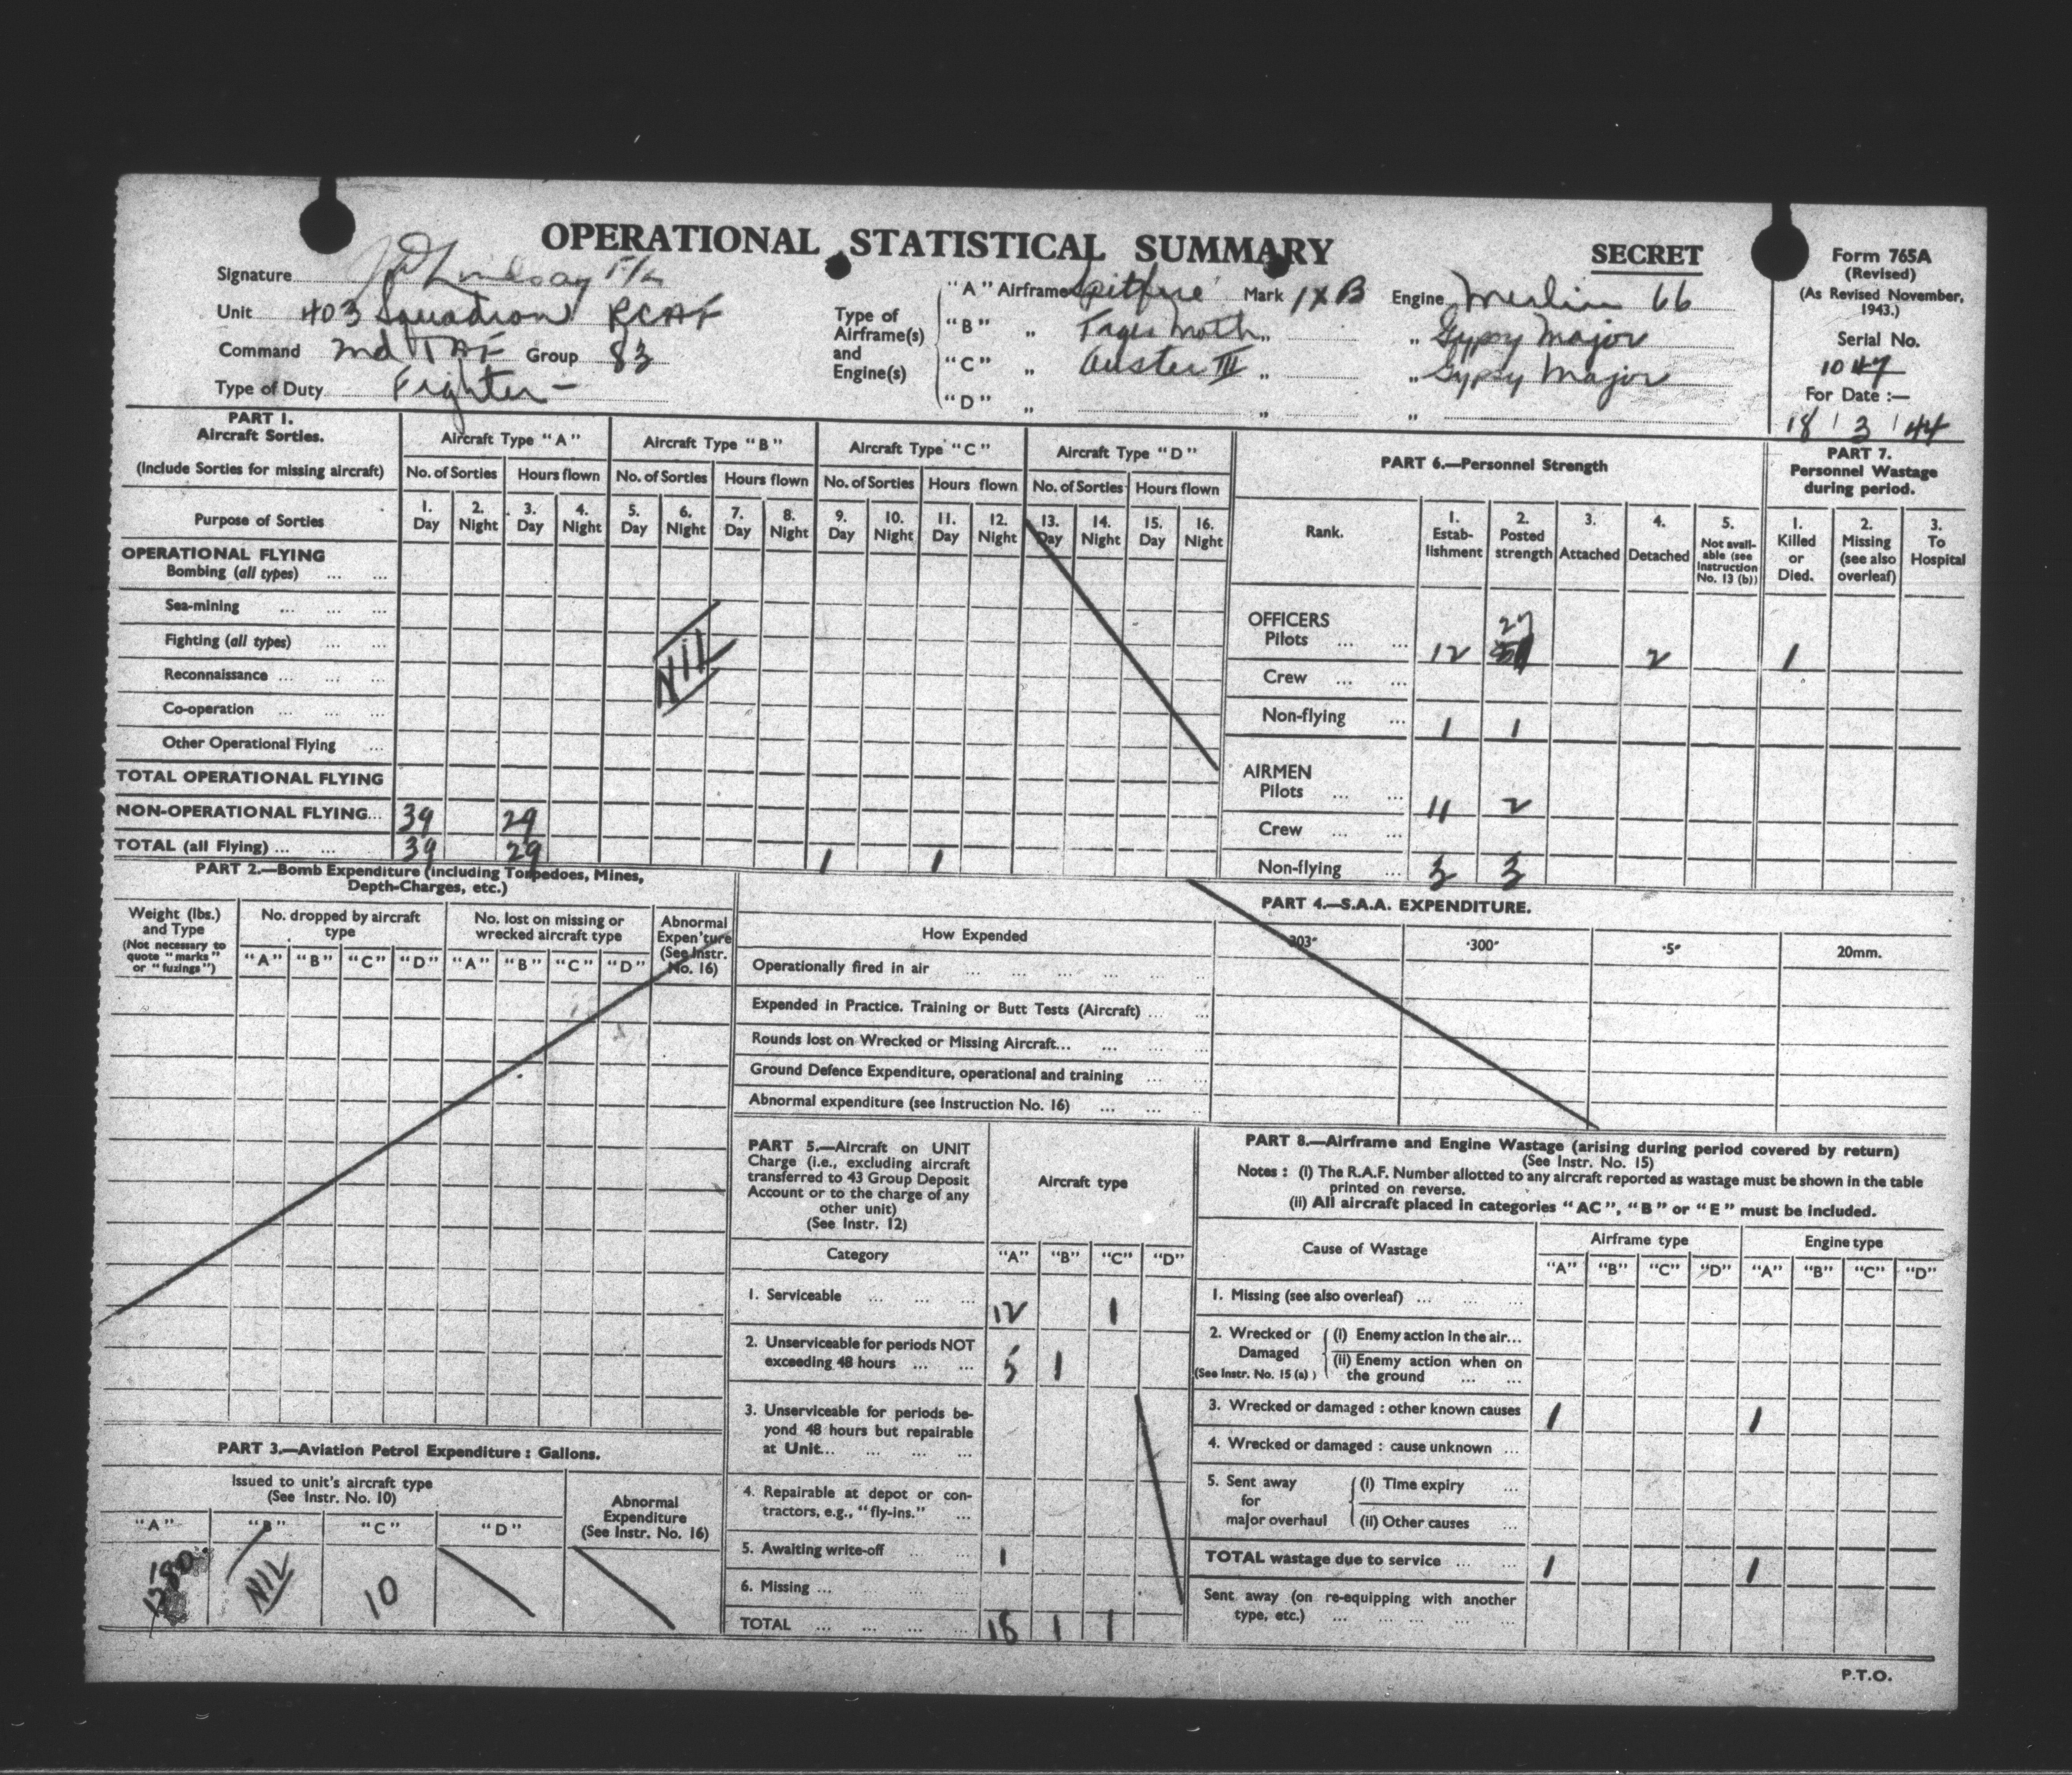 OPERATIONAL STATISTICAL SUMMARY
SECRET
Form 765A
(Revised)
(As Revised November, 1943.)
Serial No.
1047
For Date :—
18 3 44
Signature Lindsay F/L
Unit 403 Squadron RCAF
Command 2nd TAF Group 83
Type of Duty Fighter -
Type of Airframe(s) and Engine(s)
"A" Airframe Spitfire Mark IX B Engine Merlin 66
"B" „ Tager Moth „ „ Gypsy Major
"C" „ Auster III „ „ Gypsy Major
"D" „ „ „
PART 1.
Aircraft Sorties.
(Include Sorties for missing aircraft)
Aircraft Type "A" Aircraft Type "B" Aircraft Type "C" Aircraft Type "D"
No. of Sorties Hours flown No. of Sorties Hours flown No. of Sorties Hours flown No. of Sorties Hours flown
Purpose of Sorties
1. Day 2. Night 3. Day 4. Night 5. Day 6. Night 7. Day 8. Night 9. Day 10. Night 11. Day 12. Night 13. Day 14. Night 15. Day 16. Night
OPERATIONAL FLYING
Bombing (all types) ... ...
Sea-mining ... ... ...
Fighting (all types) ... ...
NIL
Reconnaissance ... ... ...
Co-operation ... ... ...
Other Operational Flying ...
TOTAL OPERATIONAL FLYING
NON-OPERATIONAL FLYING... 39 29
TOTAL (all Flying) ... ... 39 29 1 1
PART 6.—Personnel Strength
Rank.
1. Estab-lishment
2. Posted strength
3. Attached
4. Detached
5. Not avail-able (see Instruction No. 13 (b))
PART 7.
Personnel Wastage during period.
1. Killed or Died.
2. Missing (see also overleaf)
3. To Hospital
OFFICERS
27
Pilots ... ... 12 2 1
Crew ... ...
Non-flying ... 1 1
AIRMEN
Pilots ... ... 11 2
Crew ... ...
Non-flying ... 3 3
PART 2.—Bomb Expenditure (including Torpedoes, Mines,
Depth-Charges, etc.)
Weight (lbs.) and Type
(Not necessary to quote "marks" or "fuzings")
No. dropped by aircraft type
No. lost on missing or wrecked aircraft type
Abnormal Expen'ture (See Instr. No. 16)
"A" "B" "C" "D" "A" "B" "C" "D"
PART 4.—S.A.A. EXPENDITURE.
How Expended ·303" ·300" ·5" 20mm.
Operationally fired in air ... ... ... ... ... ...
Expended in Practice. Training or Butt Tests (Aircraft) ... ...
Rounds lost on Wrecked or Missing Aircraft... ... ... ...
Ground Defence Expenditure, operational and training ... ...
Abnormal expenditure (see Instruction No. 16) ... ... ...
PART 5.—Aircraft on UNIT
Charge (i.e., excluding aircraft
transferred to 43 Group Deposit
Account or to the charge of any
other unit)
(See Instr. 12)
Aircraft type
Category "A" "B" "C" "D"
1. Serviceable ... ... ... 12 1
2. Unserviceable for periods NOT
exceeding 48 hours ... ... 5 1
3. Unserviceable for periods be-
yond 48 hours but repairable
at Unit... ... ... ...
4. Repairable at depot or con-
tractors, e.g., "fly-ins." ...
5. Awaiting write-off ... ... 1
6. Missing ... ... ... ...
TOTAL ... ... ... ... 18 1 1
PART 3.—Aviation Petrol Expenditure : Gallons.
Issued to unit's aircraft type
(See Instr. No. 10)
Abnormal Expenditure (See Instr. No. 16)
"A" "B" "C" "D"
NIL 10
PART 8.—Airframe and Engine Wastage (arising during period covered by return)
(See Instr. No. 15)
Notes : (i) The R.A.F. Number allotted to any aircraft reported as wastage must be shown in the table
printed on reverse.
(ii) All aircraft placed in categories "AC", "B" or "E" must be included.
Cause of Wastage Airframe type Engine type
"A" "B" "C" "D" "A" "B" "C" "D"
1. Missing (see also overleaf) ... ... ...
2. Wrecked or Damaged (See Instr. No. 15 (a) )
(i) Enemy action in the air...
(ii) Enemy action when on
the ground ... ...
3. Wrecked or damaged : other known causes 1 1
4. Wrecked or damaged : cause unknown ...
5. Sent away for major overhaul
(i) Time expiry ...
(ii) Other causes ...
TOTAL wastage due to service ... ... 1 1
Sent away (on re-equipping with another
type, etc.) ... ... ... ... ...
P.T.O.